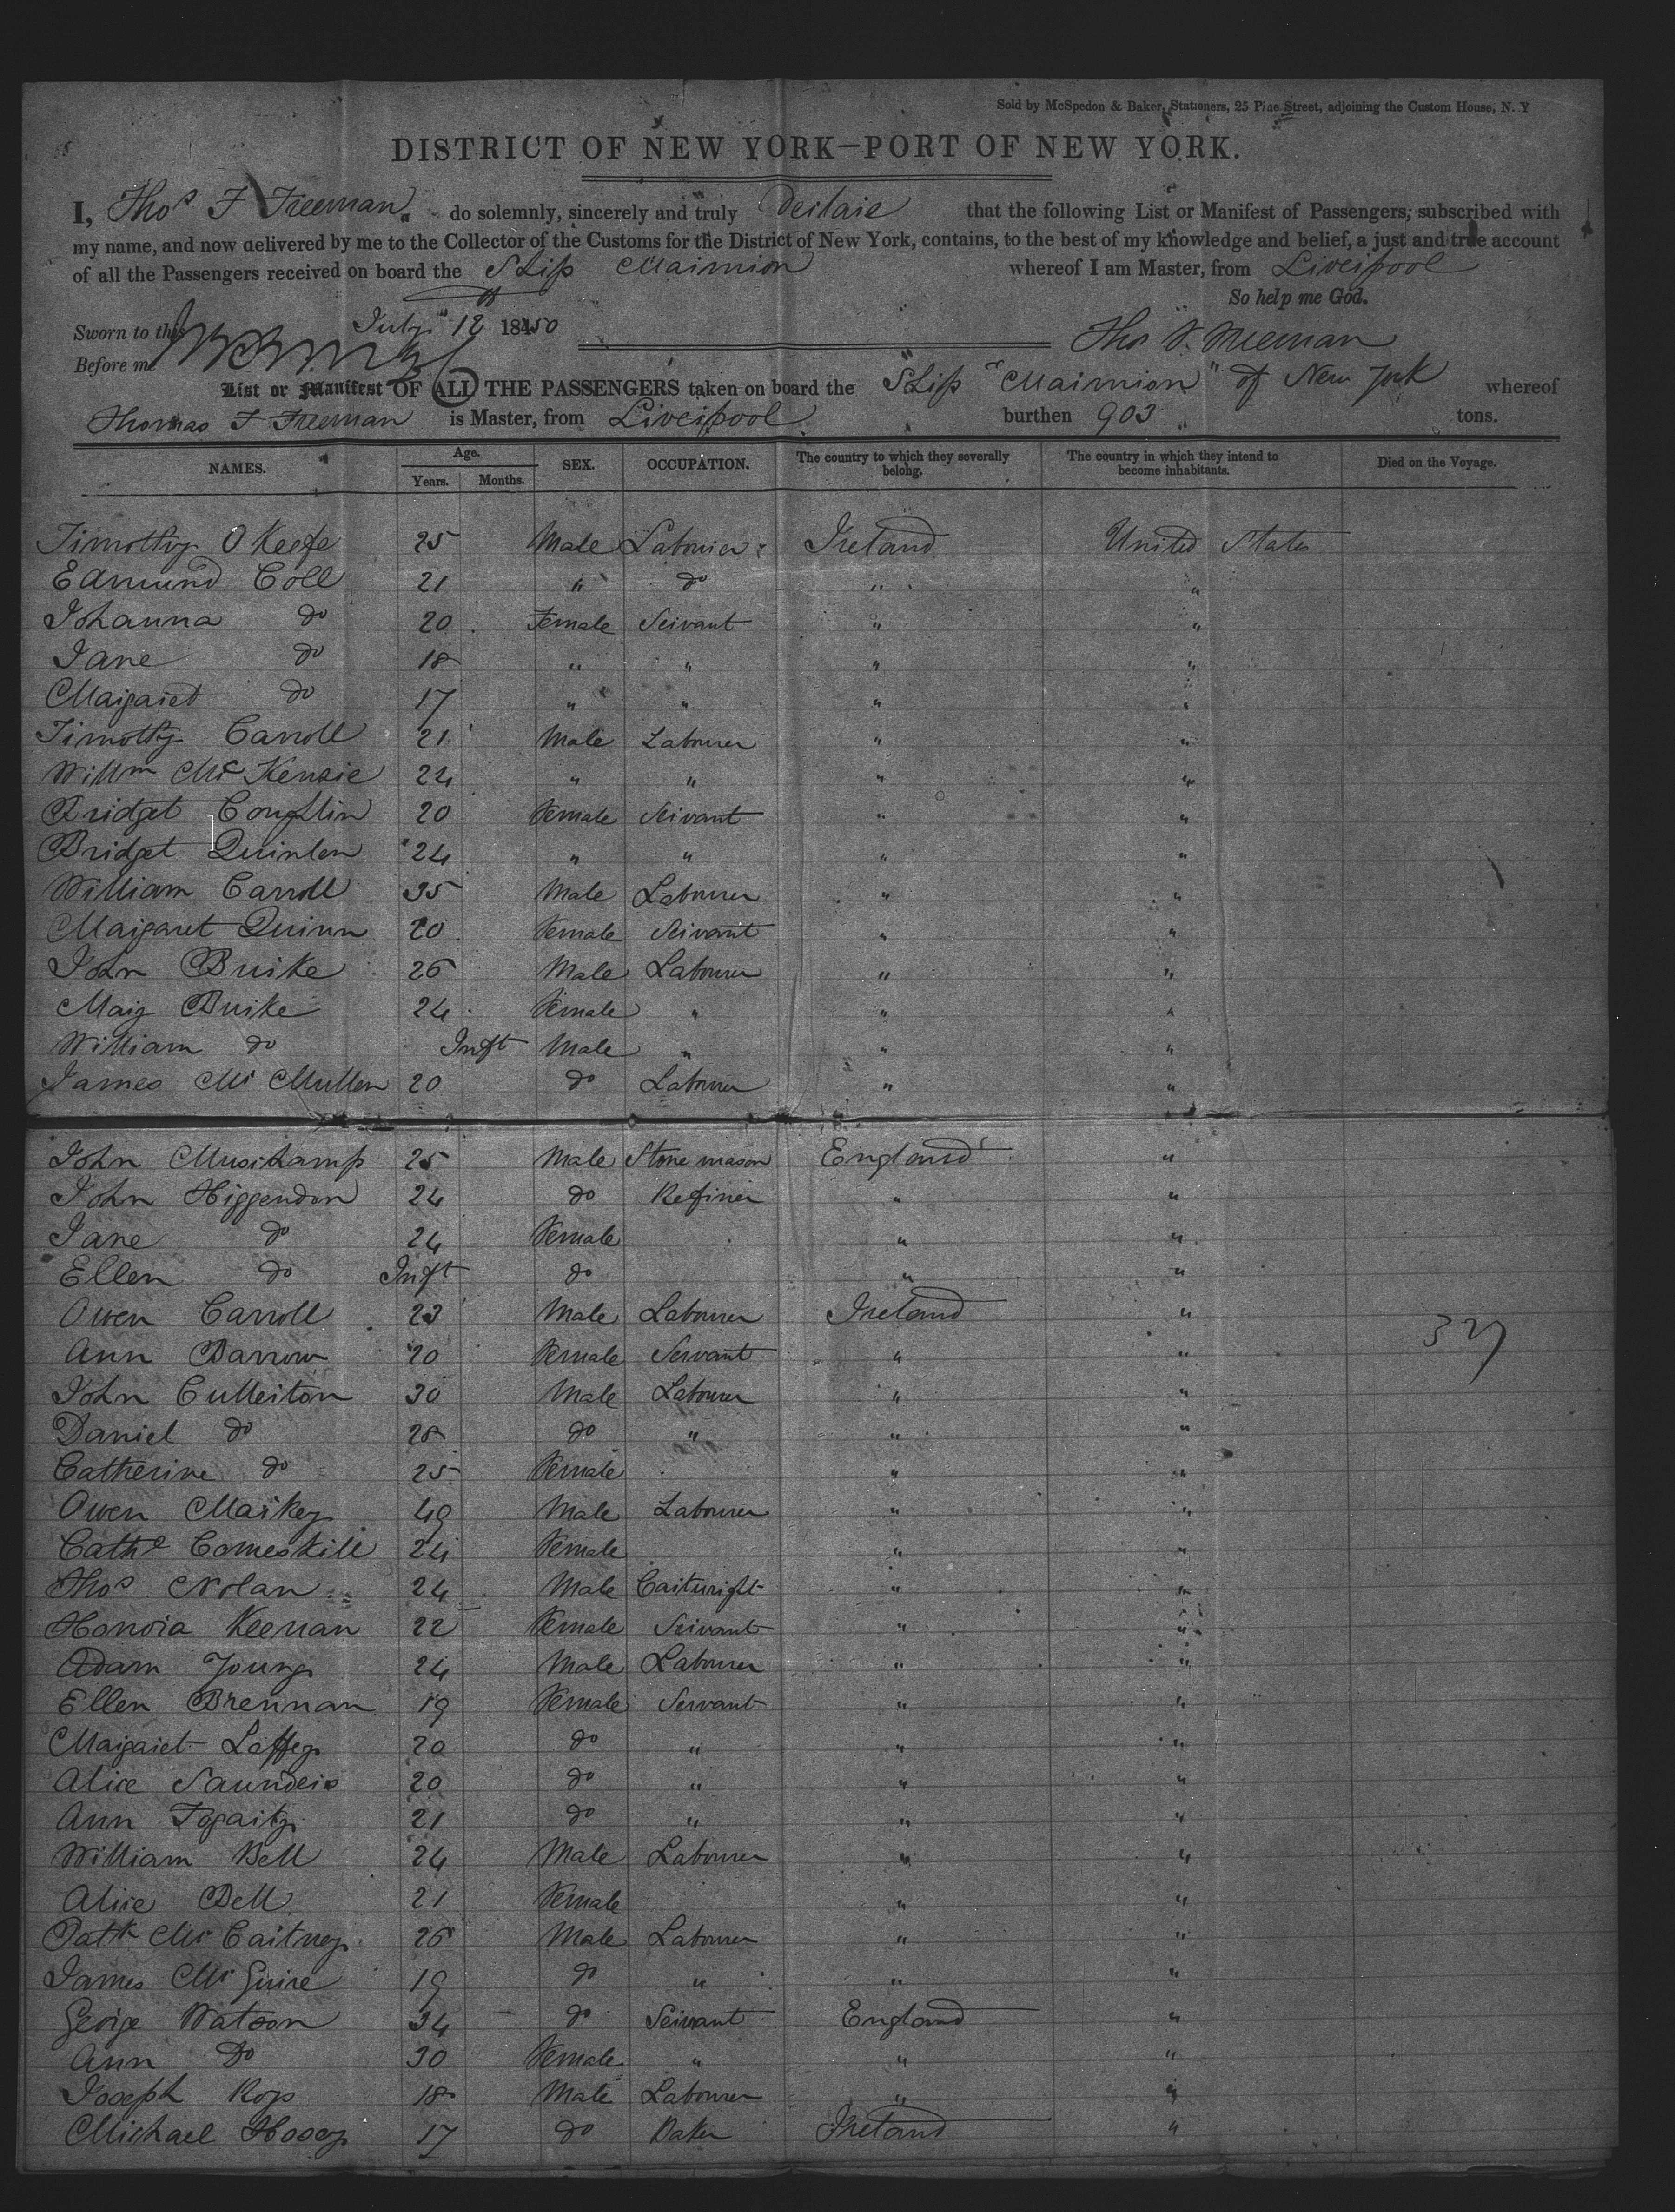 Sold by McSpedon & Baker, Stationers, 25 Pine Street, adjoining the Custom House, N. Y
DISTRICT OF NEW YORK—PORT OF NEW YORK.
I, Thos F Freeman do solemnly, sincerely and truly declare that the following List or Manifest of Passengers, subscribed with
my name, and now delivered by me to the Collector of the Customs for the District of New York, contains, to the best of my knowledge and belief, a just and true account
of all the Passengers received on board the Ship Marmion whereof I am Master, from Liverpool
So help me God.
Sworn to this July 12 1850
Thos F. Freeman
Before me
List or Manifest OF ALL THE PASSENGERS taken on board the Ship "Marmion" of New York whereof
Thomas F Freeman is Master, from Liverpool burthen 903 tons.
NAMES. Age. Years. Months. SEX. OCCUPATION. The country to which they severally belong. The country in which they intend to become inhabitants. Died on the Voyage.
Timothy O Keefe 25 Male Labourer Ireland United States
Edmund Coll 21 " do " "
Johanna do 20 Female Servant " "
Jane do 18 " " " "
Margaret do 17 " " " "
Timothy Carroll 21 Male Labourer " "
Willm Mc Kenzie 24 " " " "
Bridget Coughlin 20 Female Servant " "
Bridget Quinlen 24 " " " "
William Carroll 35 Male Labourer " "
Margaret Quinn 20 Female Servant " "
John Burke 26 Male Labourer " "
Mary Burke 24 Female " " "
William do Inft Male " " "
James Mc Mullen 20 do Labourer " "
John Muschamp 25 Male Stone mason England "
John Higgendon 24 do Refiner " "
Jane do 24 Female " "
Ellen do Inft do " "
Owen Carroll 23 Male Labourer Ireland "
327
Ann Barrow 20 Female Servant " "
John Culleiton 30 Male Labourer " "
Daniel do 28 do " " "
Catherine do 25 Female " "
Owen Markey 49 Male Labourer " "
Cathe Comeskill 24 Female " "
Thos Nolan 24 Male Cartwright " "
Honora Keenan 22 Female Servant " "
Adam Young 24 Male Labourer " "
Ellen Brennan 19 Female Servant " "
Margaret Laffey 20 do " " "
Alice Saunders 20 do " " "
Ann Fogarty 21 do " " "
William Bell 24 Male Labourer " "
Alice Bell 21 Female " "
Patk Mc Cartney 26 Male Labourer " "
James Mc Guire 19 do " " "
George Watson 34 do Servant England "
Ann Do 30 Female " " "
Joseph Roys 18 Male Labourer " "
Michael Hosey 17 do Baker Ireland "